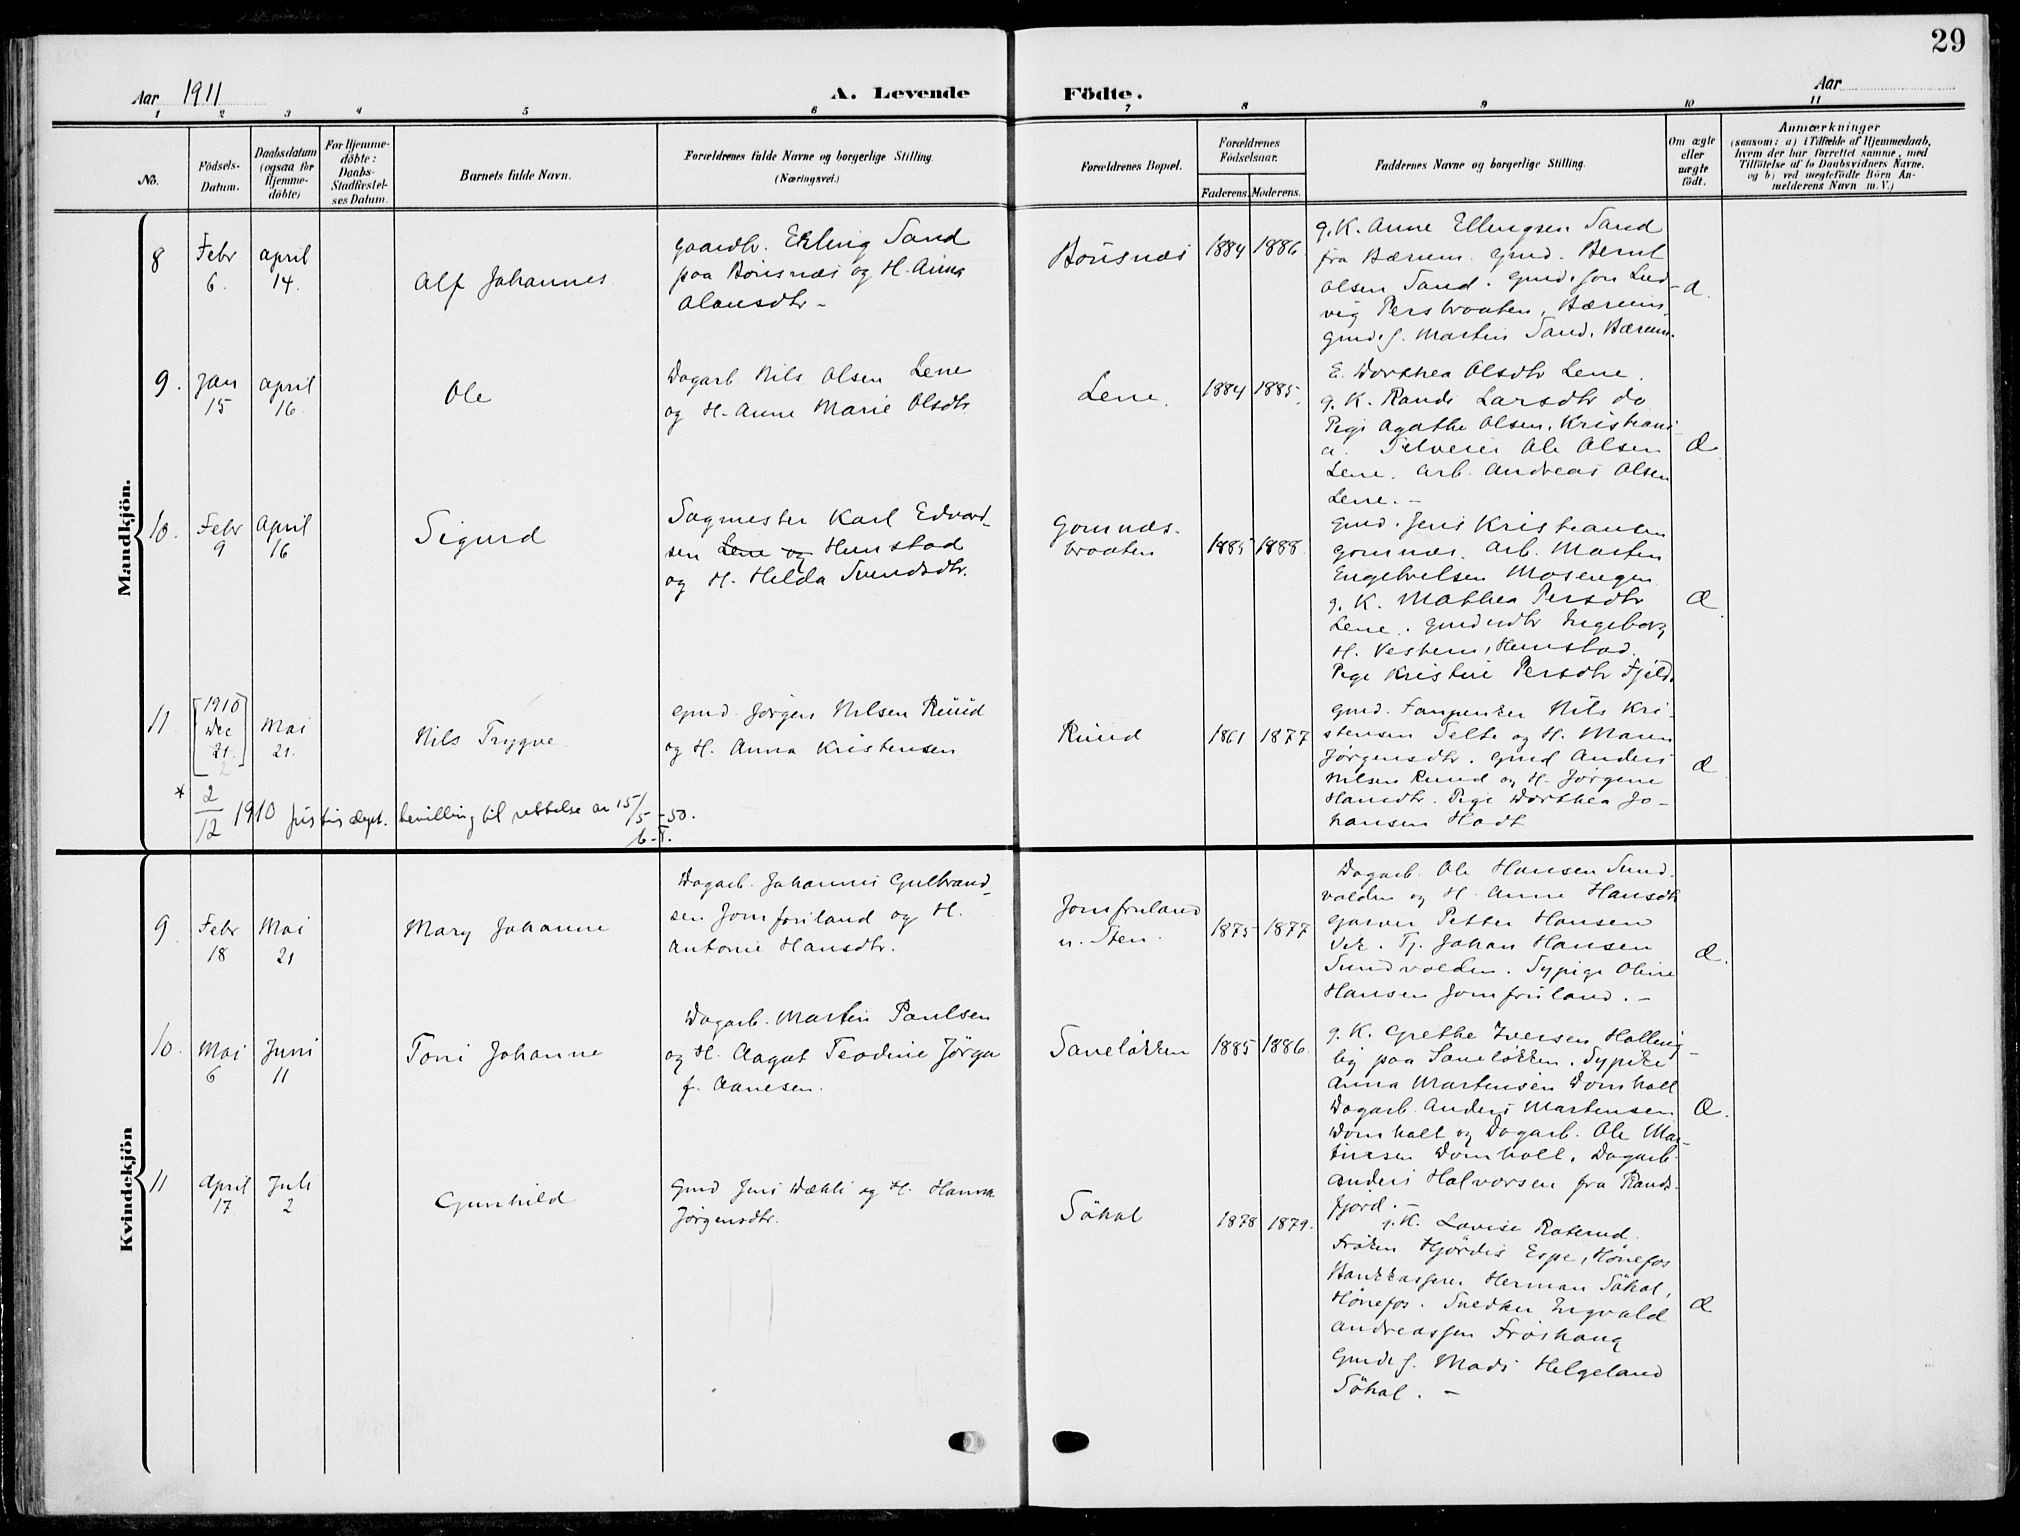 29
Aar 1911
A. Levende Födte.
Aar
1 2 3 4 5 6 7 8 9 10 11
No.
Födsels-
Datum.
Daabsdatum
(ogsaa för
Hjemme-
döbte)
For Hjemme-
döbte:
Daabs-
Stadfæstel-
ses Datum.
Barnets fulde Navn.
Forældrenes fulde Navne og borgerlige Stilling.
(Næringsvei.)
Forældrenes Bopæl.
Forældrenes
Födselsaar.
Faderens. Moderens.
Faddernes Navne og borgerlige Stilling.
Om ægte
eller
uægte
födt.
Anmærkninger
(saasom: a) i Tilfælde af Hjemmedaab,
hvem der har forrettet samme, med
Tilföielse af to Daabsvidners Navne,
og b) ved uægtefödte Börn An-
melderens Navn m. V.)
Mandkjön.
8
Febr
6.
april
14.
Alf Johannes
Gaardbr. Erling Sand
paa Bönsnæs og H. Anna
Olausdtr -
Bönsnæs
1884 1886
g. K. Anne Ellingsen Sand
fra Bærum. Gmd. Bernt
Olsen Sand. Gmds søn Lud-
vig Persbraaten, Bærum,
gmds s. Martin Sand, Bærum.
Æ.
9.
Jan
15
april
16.
Ole
Dagarb Nils Olsen Lene
og H. Anne Marie Olsdtr
Lene.
1884 1885.
E. Dorthea Olsdtr Lene.
g. K. Randi Larsdtr do
Pige Agathe Olsen, Kristiani-
a. Selveier Ole Olsen
Lene. arb. Andreas Olsen
Lene. -
Æ
10.
Febr
9
April
16
Sigurd
Sagmester Karl Edvard-
sen Lene og Hemstad
og H. Helda Svendsdtr.
Gomnæs-
braaten
1885 1888.
Gmd. Jens Kristiansen
Gomnæs. Arb. Martin
Engebretsen Mosengen
g. K. Mathea Persdtr
Lene. Gmdsdtr Ingeborg
H. Vestern, Hemstad.
Pige Kristine Persdtr Fjeld.
Æ
11.
[1910
Dec
21.]
Mai
21.
Nils Trygve.
Gmd. Jørgen Nilsen Ruud
og H. Anna Kristensen
Ruud
1861 1877
Gmd. Nils Kri-
stensen Selte og H. Maren
Jørgensdtr. Gmd Anders
Nilsen Ruud og H. Jørgine
Hansdtr. Pige Dorthea Jo-
hansen Hadt
Æ
* 2/12 1910 justisdept. bevilling til rettelse av 15/5 -50.
b.T.
Kvindekjön
9
Febr
18
Mai
21
Mary Johanne
Dagarb. Johannes Gulbrand-
sen Jomfruland og H.
Antonie Hansdtr.
Jomfruland
u. Sten.
1875 1877
Dagarb. Ole Hansen Sund-
volden og H. Anne Hansdtr
Garver Petter Hansen
Vik. Tj. Johan Hansen
Sundvolden. Sypige Oline
Hansen Jomfruland. -
Æ.
10.
Mai
6
Juni
11
Toni Johanne
Dagarb. Martin Paulsen
og H. Aagot Teodine Jørga
f. Aanesen.
Saneløkken
1885 1886.
g. K. Grethe Iversen Halling-
by paa Saneløkken. Sypike
Anna Martinsen Domholt
Dagarb. Anders Martinsen
Domholt og Dagarb. Ole Mar-
tinsen Domholt, Dagarb.
Anders Halvorsen fra Rands-
fjord. -
Æ.
11
April
17
Juli
2
Gunhild
Gmd Jens Dæhli og H. Hanna
Jørgensdtr.
Söhol
1878 1879.
g. K. Lovise Roterud.
Frøken Hjördis Espe, Hønefos
Bankkasserer Herman Söhol,
Hønefos. Snedker Ingvald
Andreassen Frøshaug
Gmds s. Mads Helgeland
Söhol. -
Æ